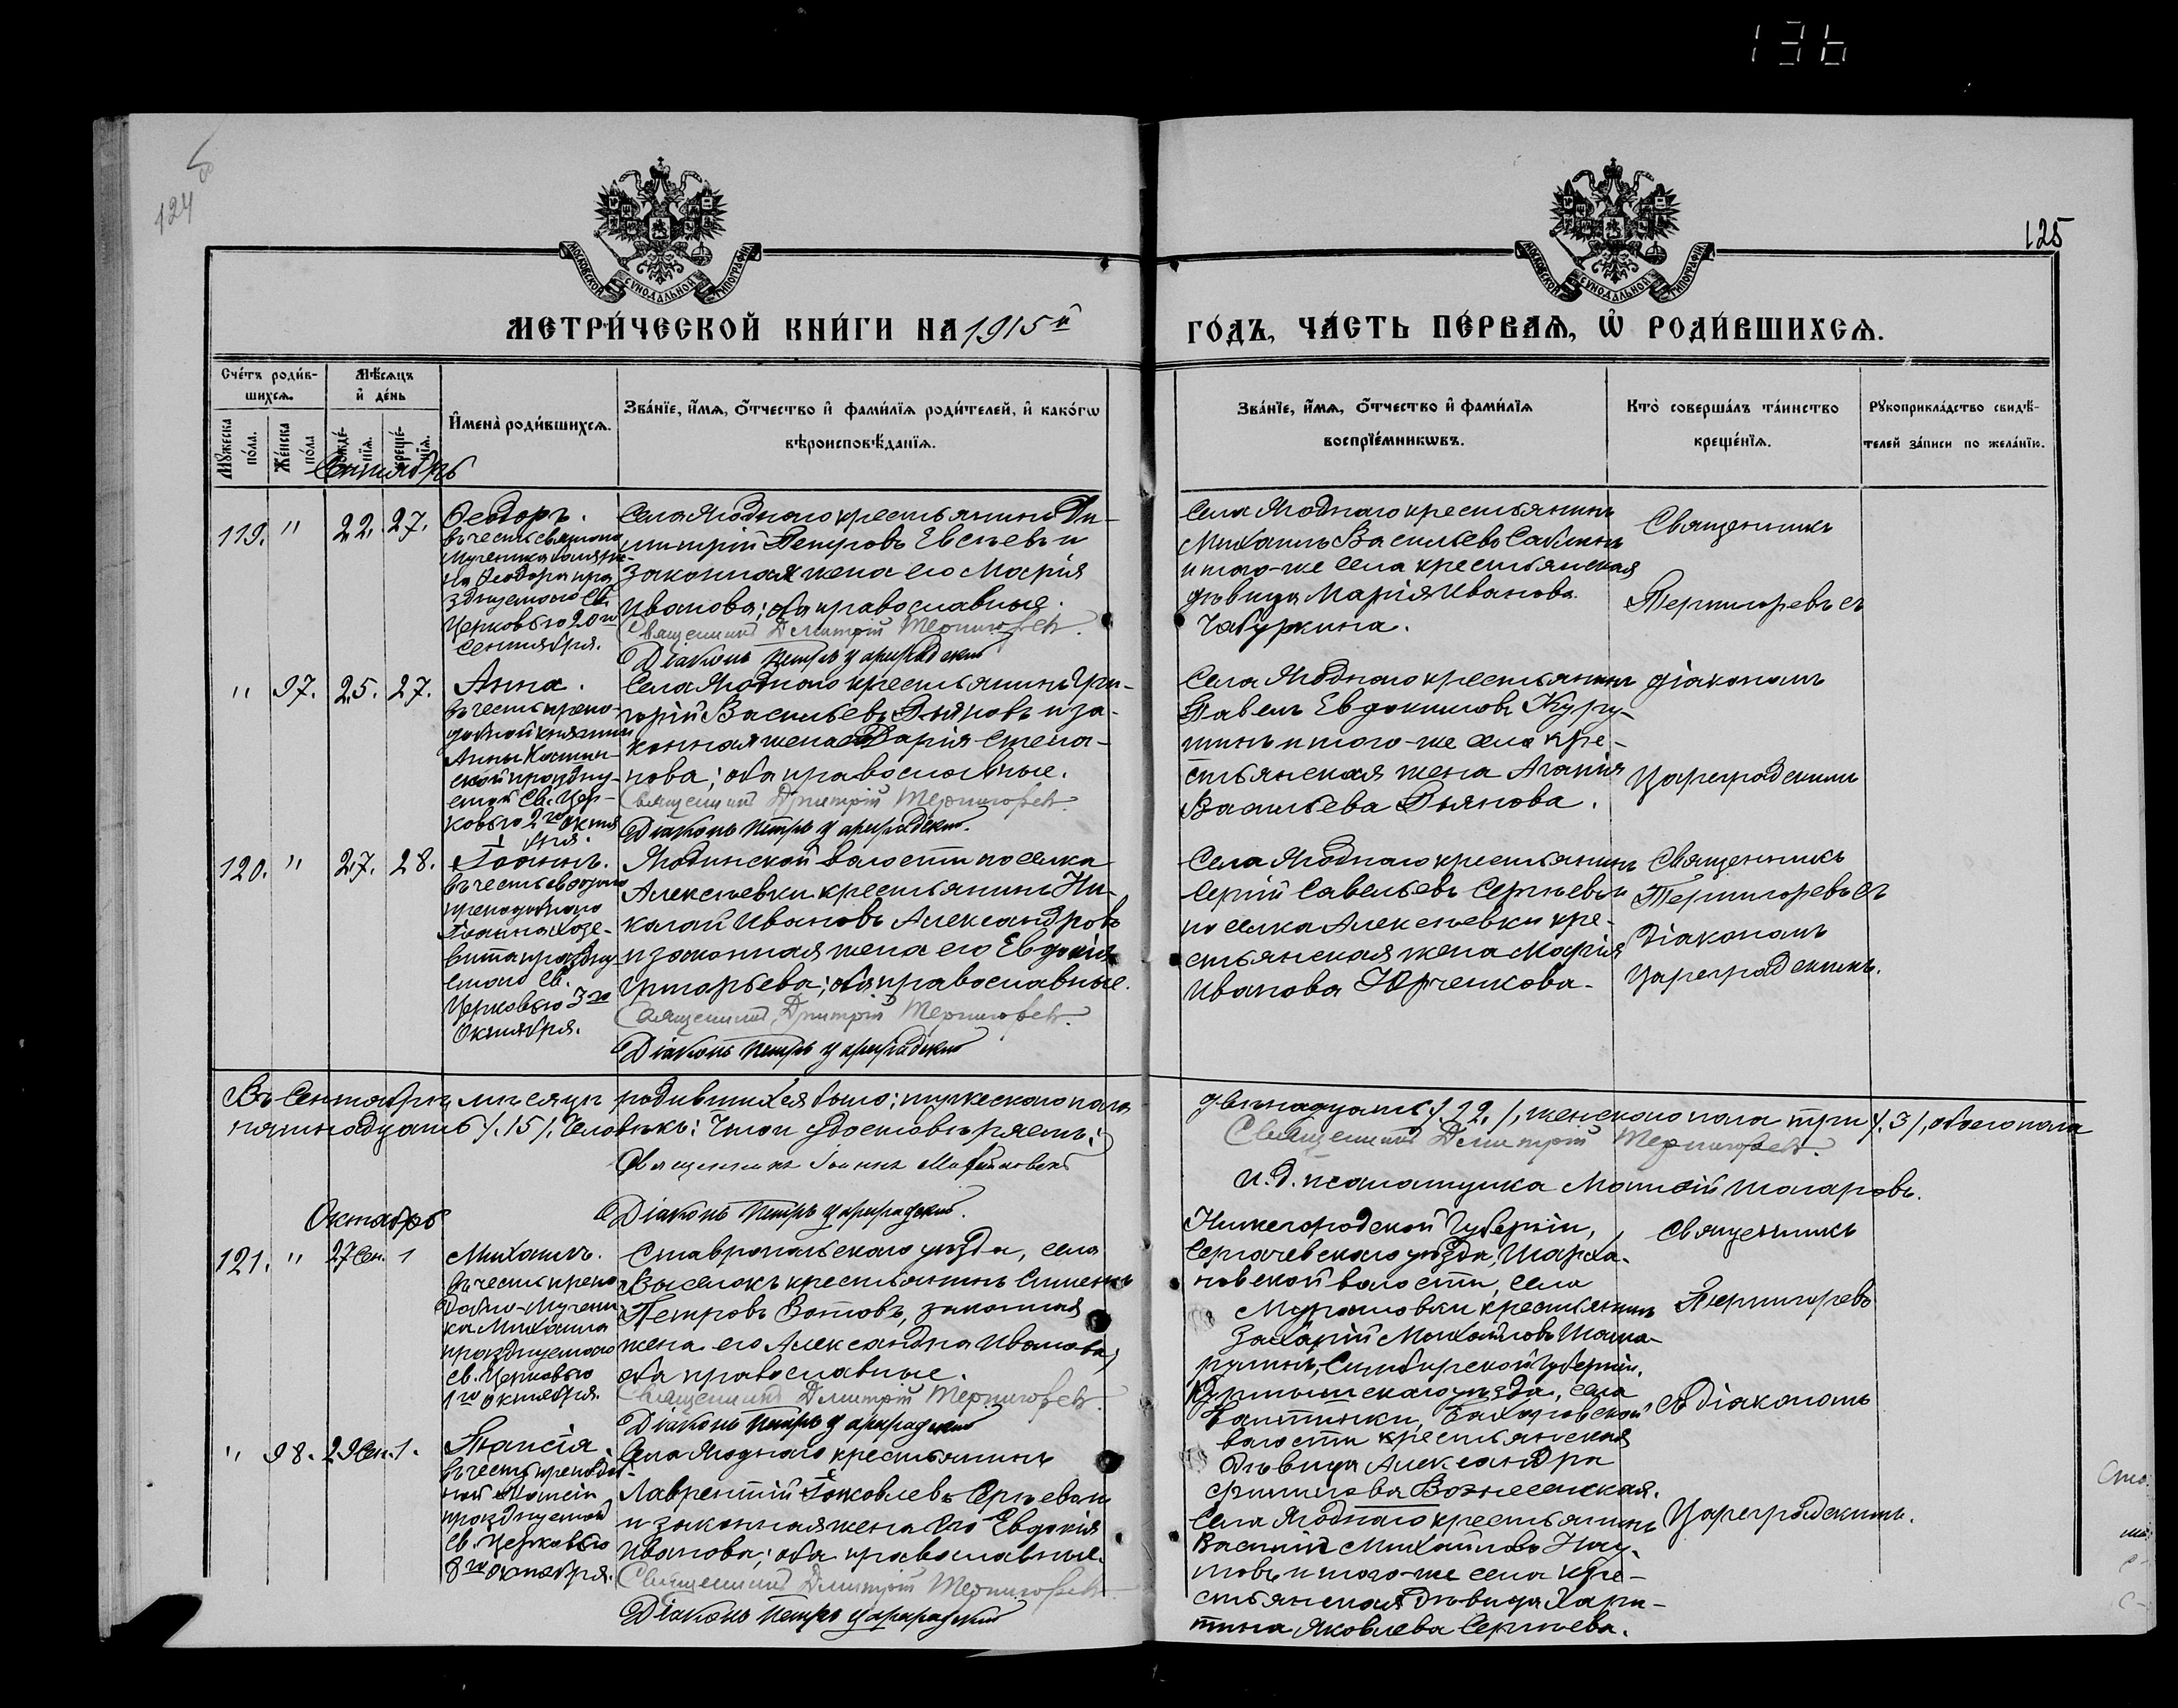 136
124
125
МОСКОВСКОЙ СѴНОДАЛЬНОЙ ТИПОГРАФІИ
МОСКОВСКОЙ СѴНОДАЛЬНОЙ ТИПОГРАФІИ
МЕТРИ́ЧЕСКОЙ КНИ́ГИ НА 1915й
ГО́ДЪ, ЧА́СТЬ ПЕ́РВАѦ, Ѡ҆ РОДИ́ВШИХСѦ.
Сче́тъ роди́в-
шихсѧ.
Мѣ́сѧцъ
и҆ де́нь
Мꙋжеска
по́ла.
Же́нска
по́ла
рожде́-
нїѧ.
креще́-
нїѧ.
И҆мена̀ роди́вшихсѧ.
Зва́нїе, и҆́мѧ, ѻ҆́тчество и҆ фами́лїѧ роди́телей, и҆ како́гѡ
вѣроисповѣ́данїѧ.
Зва́нїе, и҆́мѧ, ѻ҆́тчество и҆ фами́лїѧ
воспрїе́мникѡвъ.
Кто̀ соверша́лъ та́инство
креще́нїѧ.
Рꙋкоприкла́дство свидѣ́-
телей за́писи по жела́нїю.
Сентябрь
119. " 22. 27.
Ѳеодоръ.
въ честь святого
мученика
Ѳеодора пра
зднуемого Св.
Церковью 20го
Сентября.
Села Ягоднаго крестьянинъ Ди-
митрій Петровъ Евсѣевъ и
законная жена его Марія
Иванова; оба православные.
Священникъ Димитрій Терпигоревъ.
Діаконъ Петръ Цареградскій
Села Ягоднаго крестьянинъ
Михаилъ Васильевъ Саблинъ
и того-же села крестьянская
дѣвица Марія Иванова
Чабуркина.
Священникъ
Терпигоревъ съ
" 97. 25. 27.
Анна.
въ честь препо-
добной княгини
Анны Кашин-
ской праздну-
емой Св. Цер-
ковью 2го октя
бря.
Села Ягоднаго крестьянинъ Гри-
горій Васильевъ Пьяновъ и за-
конная жена его Дарія Степа-
нова; оба православные.
Священникъ Димитрій Терпигоревъ
Діаконъ Петръ Цареградскій.
Села Ягоднаго крестьянинъ
Павелъ Евдокимовъ Кургу-
шинъ и того-же села кре-
стьянская жена Агапія
Васильева Пьянова.
діакономъ
Цареградскимъ
120. " 27. 28.
Іоаннъ.
въ честь святого
преподобного
Іоанна Хозе-
вита праздну-
емого Св.
Церковью 3го
Октября.
Ягодинской волости поселка
Алексѣевки крестьянинъ Ни-
колай Ивановъ Александровъ
и законная жена его Евдокія
Григорьева; оба православные.
Священникъ Димитрій Терпигоревъ.
Діаконъ Петръ Цареградскій
Села Ягоднаго крестьянинъ
Сергій Савельевъ Сергѣевъ и
поселка Алексѣевки кре-
стьянская жена Марія
Иванова Юрченкова.
Священникъ
Терпигоревъ съ
Діакономъ
Цареградскимъ.
Въ Сентябрѣ мѣсяцѣ родившихся было: мужескаго пола
двѣнадцать /.12./, женскаго пола три /.3/, обоего пола
пятнадцать /.15/. человѣкъ: Чтои удостовѣряемъ:
Священникъ Димитрій Терпигоревъ.
Священникъ Іоаннъ
Діаконъ Петръ Цареградскій.
И. д. псаломщика Матвѣй Макаровъ.
Октябрь
121. " 27 Сен. 1
Михаилъ.
въ честь препо
добно-мучени
ка Михаила
празднуемого
Св. Церковью
1го октября.
Ставропольскаго уѣзда, села
Выселокъ крестьянинъ Сименъ
Петровъ Зотовъ, законная
жена его Александра Иванова,
оба православные.
Священникъ Димитрій Терпигоревъ.
Діаконъ Петръ Цареградскій
Нижегородской Губерніи,
Сергачевскаго уѣзда,
новской волости, села
Мурашовки крестьянинъ
Захарій Михайловъ
Симбирской Губерніи,
Курмышскаго уѣзда, села
волости крестьянская
дѣвица Александра
Филипова Вознесенская.
Священникъ
Терпигоревъ
съ діакономъ
" 98. 29 Сен. 1.
Таисія.
въ честь преподоб-
ной Таисіи
празднуемой
Св. Церковью
8го октября.
Села Ягоднаго крестьянинъ
Лаврентій Іаковлевъ Сергѣевъ
и законная жена его Евдокія
Иванова; оба православные.
Священникъ Димитрій Терпигоревъ
Діаконъ Петръ Цареградскій
Села Ягоднаго крестьянинъ
Василій Михайловъ Нау-
мовъ и того-же села кре-
стьянская дѣвица Хари-
тина Яковлева Сергѣева.
Цареградскимъ.